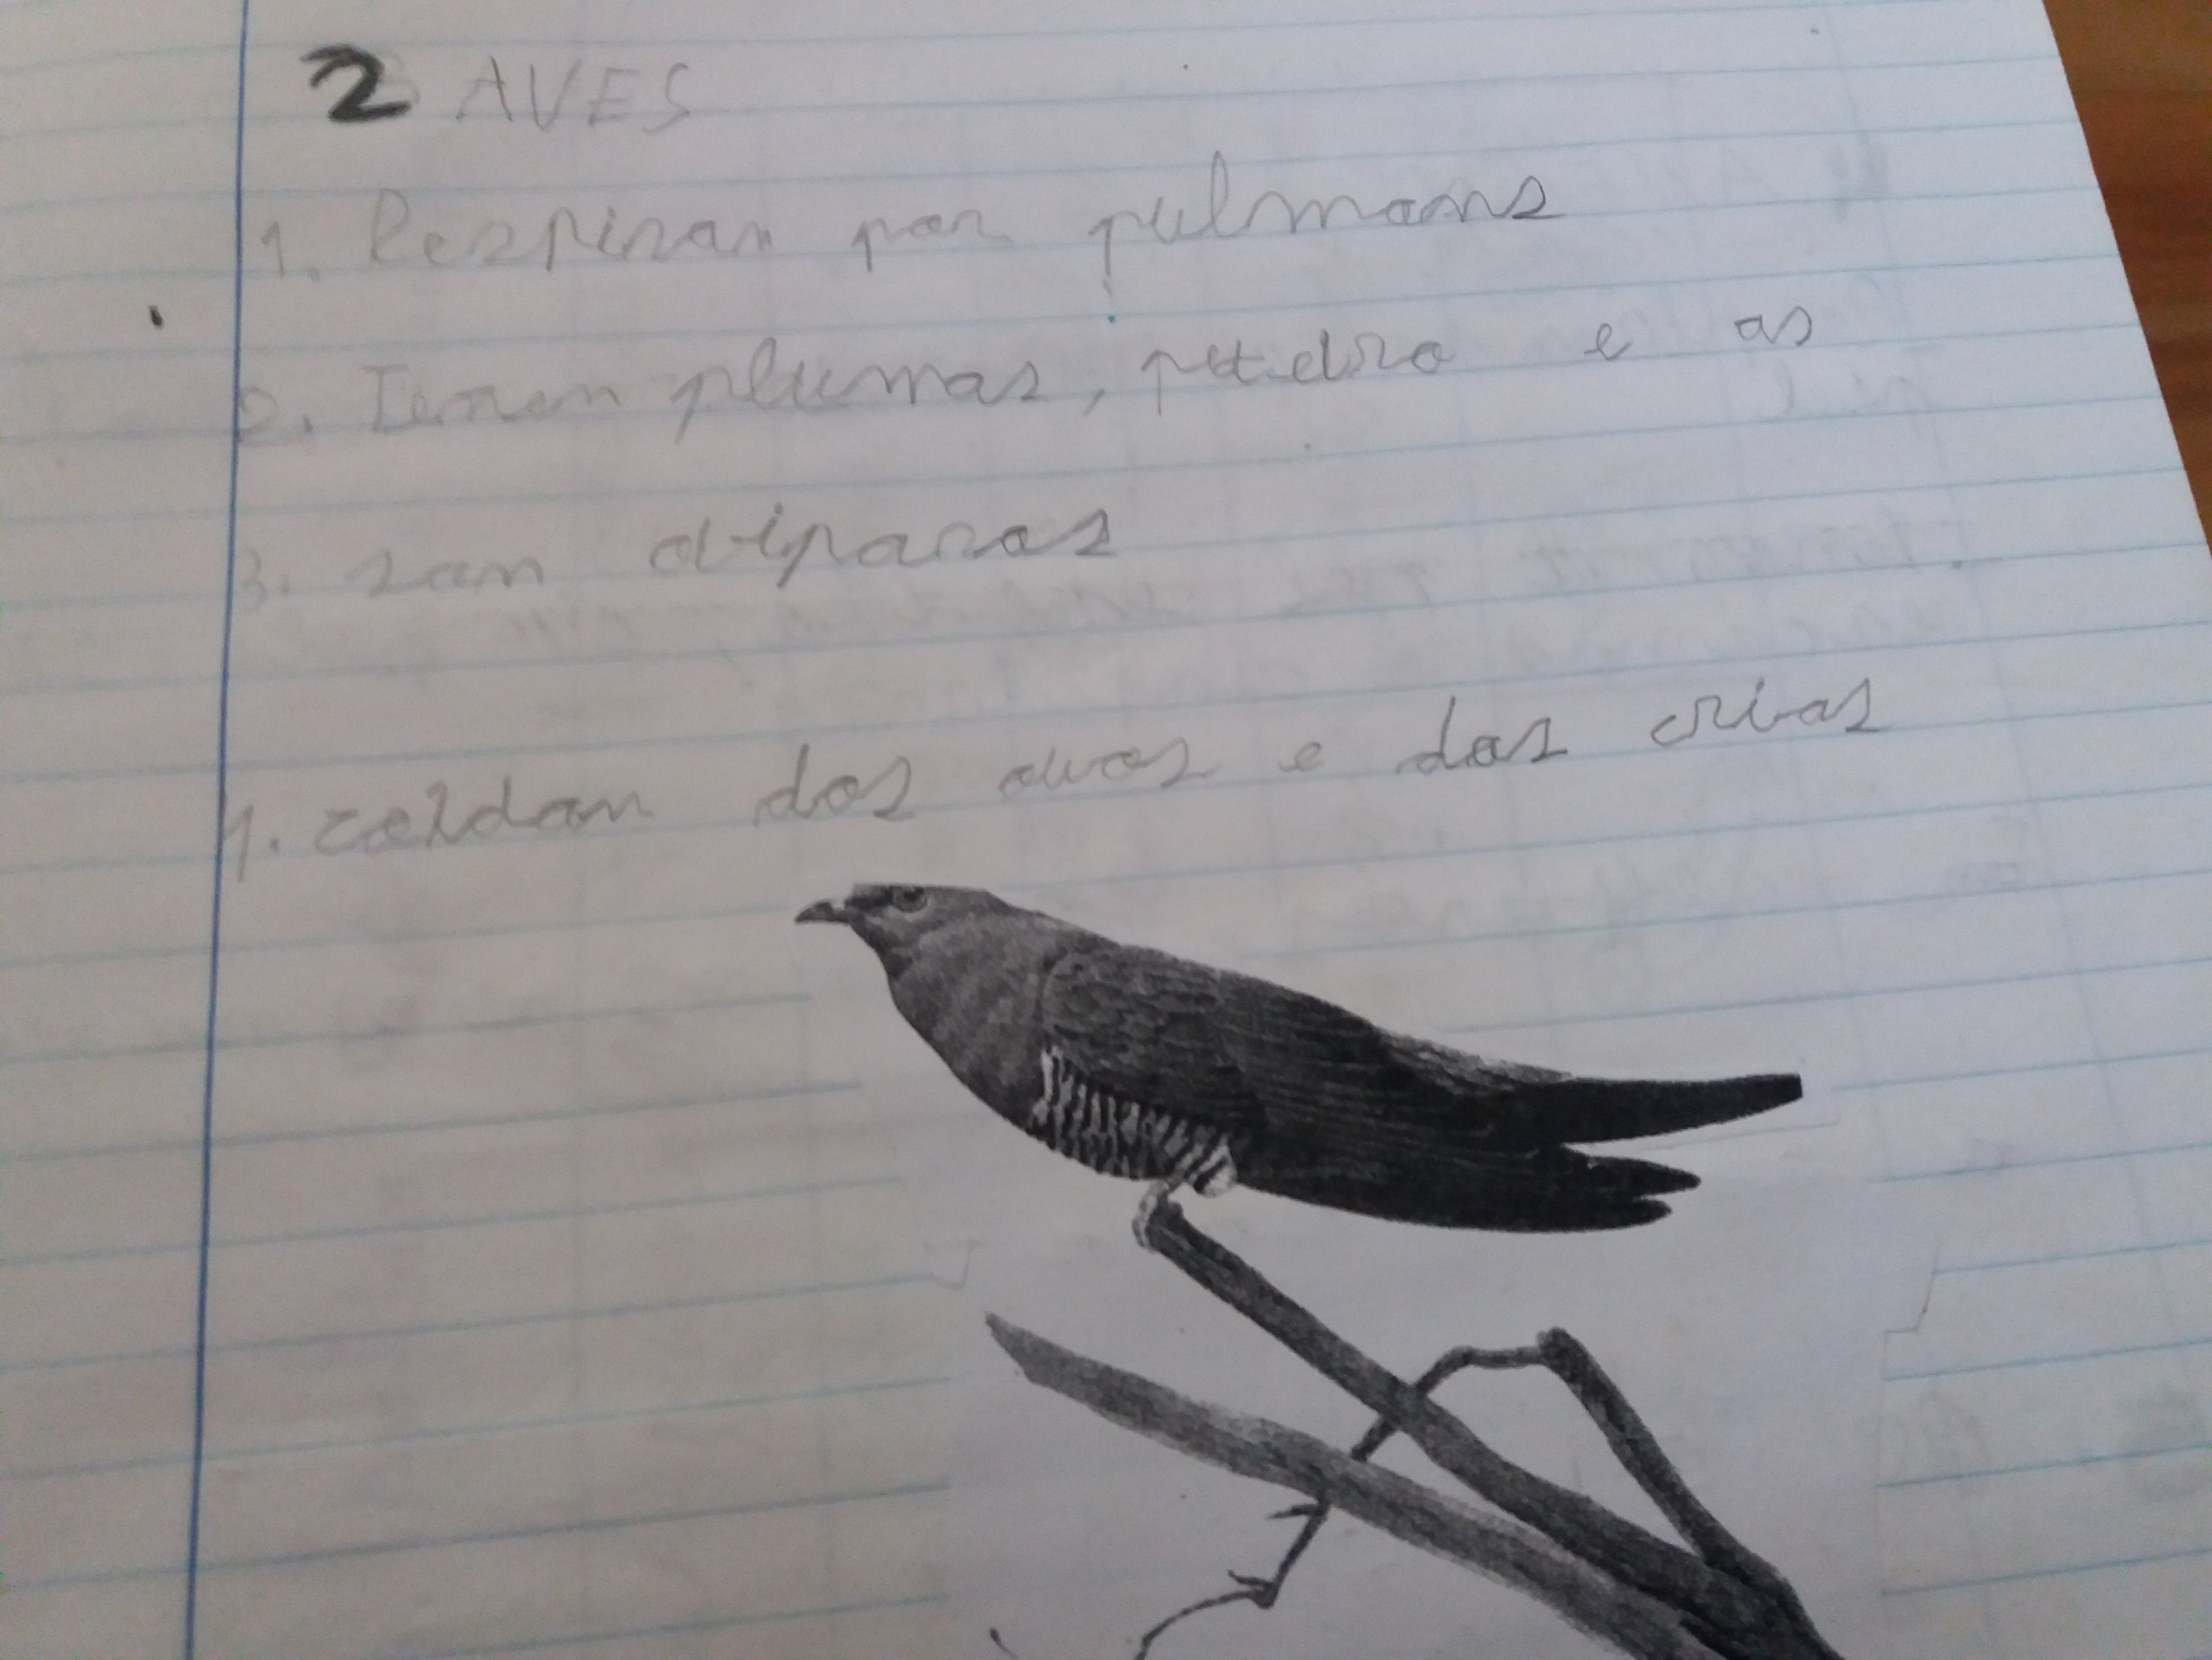 2 AVES
1. Respiran por pulmons
2. Tenen plumas, peteiro e as
3. son oviparos
4. coidan dos ovos e das crias